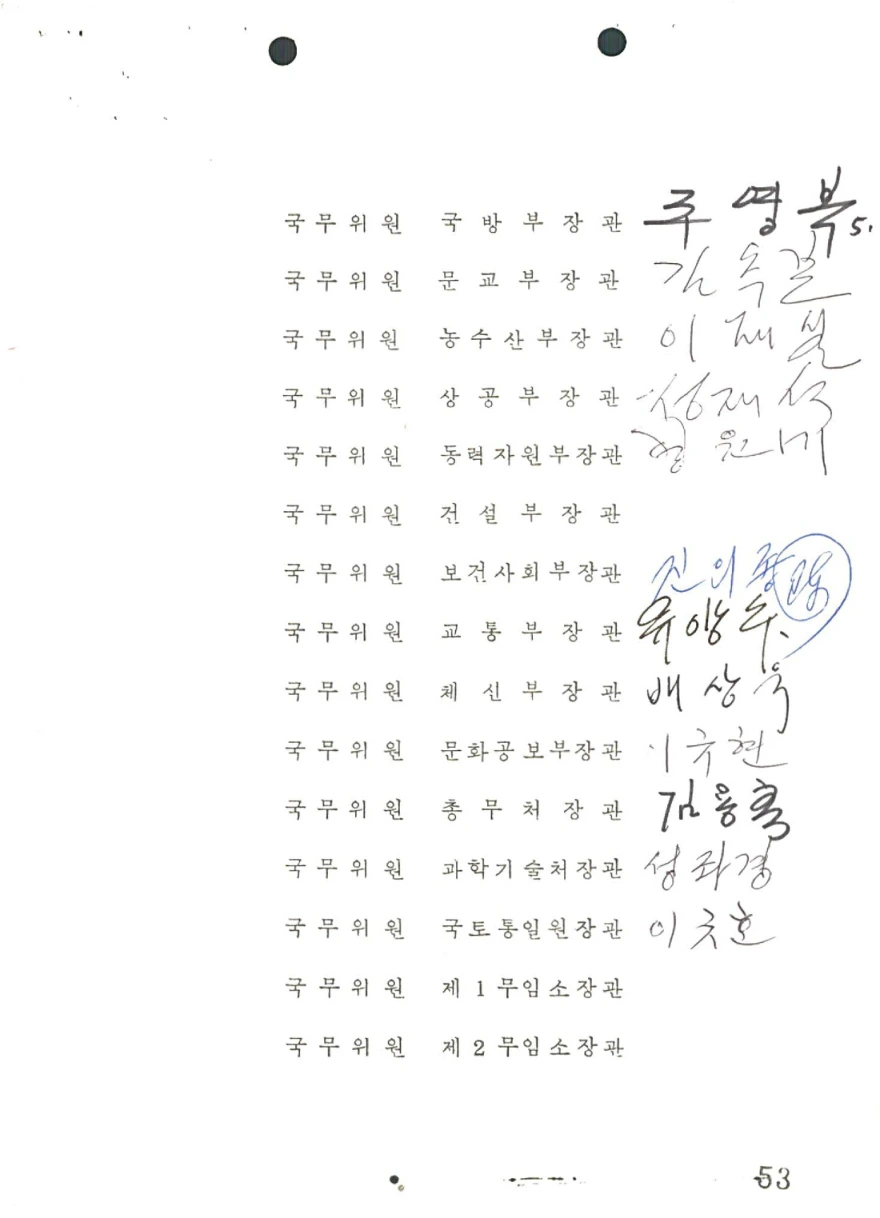 국무위원 국방부장관 주영복 5.
국무위원 문교부장관 김옥길
국무위원 농수산부장관 이재설
국무위원 상공부장관 정재석
국무위원 동력자원부장관
국무위원 건설부장관
국무위원 보건사회부장관 진의종
국무위원 교통부장관 유양수
국무위원 체신부장관 배상욱
국무위원 문화공보부장관 이규현
국무위원 총무처장관 김용휴
국무위원 과학기술처장관 성좌경
국무위원 국토통일원장관 이규호
국무위원 제1무임소장관
국무위원 제2무임소장관
53